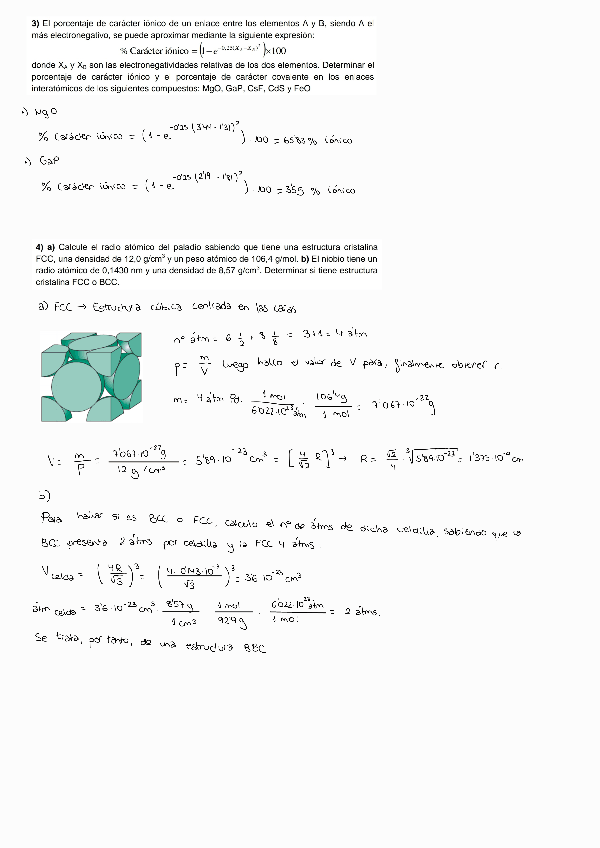 3) El porcentaje de carácter iónico de un enlace entre los elementos A y B, siendo A el
más electronegativo, se puede aproximar mediante la siguiente expresión:
% Carácter iónico = (1−e^−0.25(X_A−X_B)²)×100
donde X_A y X_B son las electronegatividades relativas de los dos elementos. Determinar el
porcentaje de carácter iónico y el porcentaje de carácter covalente en los enlaces
interatómicos de los siguientes compuestos: MgO, GaP, CsF, CdS y FeO
MgO
% Carácter iónico = (1 - e^-0'25 (3'44 - 1'31)²) · 100 = 65'83 % iónico
GaP
% Carácter iónico = (1 - e^-0'25 (2'19 - 1'81)²) · 100 = 3'55 % iónico
4) a) Calcule el radio atómico del paladio sabiendo que tiene una estructura cristalina
FCC, una densidad de 12,0 g/cm³ y un peso atómico de 106,4 g/mol. b) El niobio tiene un
radio atómico de 0,1430 nm y una densidad de 8,57 g/cm³. Determinar si tiene estructura
cristalina FCC o BCC.
a) FCC → Estructura cúbica centrada en las caras
nº átm = 6 · 1/2 + 8 · 1/8 = 3+1 = 4 átm
ρ = m/V Luego hallo el valor de V para, finalmente obtener r
m = 4 átm Pd · 1 mol / 6'022·10^23 átm · 106'4g / 1 mol = 7'067·10^-22 g
V = m/ρ = 7'067·10^-22 g / 12 g/cm³ = 5'89·10^-23 cm³ = [4/√2 R]³ → R = √2/4 · ³√5'89·10^-23 = 1'375·10^-8 cm
b)
Para hallar si es BCC o FCC, calculo el nº de átms de dicha celdilla, sabiendo que la
BCC presenta 2 átms por celdilla y la FCC 4 átms.
V celda = (4R/√3)³ = (4 · 0'143·10^-7 / √3)³ = 3'6·10^-23 cm³
átm celda = 3'6·10^-23 cm³ · 8'57 g / 1 cm³ · 1 mol / 92'9 g · 6'022·10^23 átm / 1 mol = 2 átms.
Se trata, por tanto, de una estructura BCC